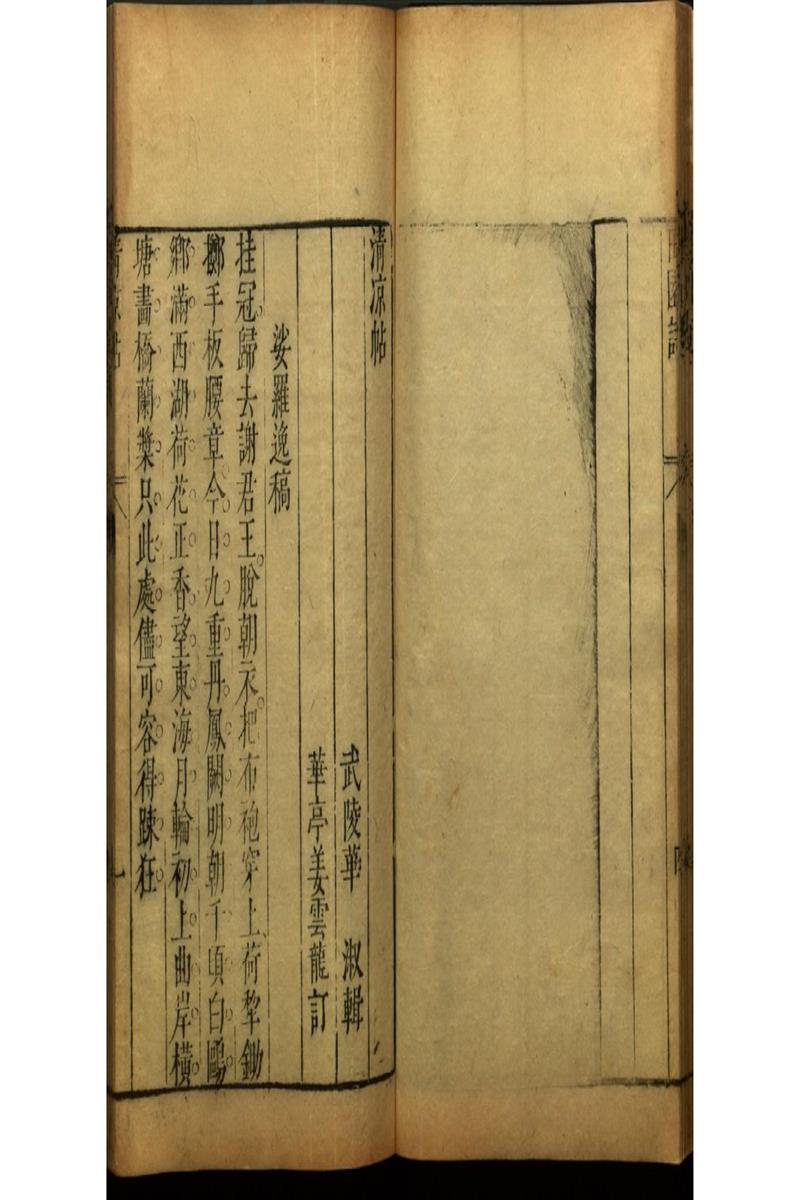 清凉帖
武陵華　淑輯
華亭姜雲龍訂
娑羅逸稿
挂冠歸去謝君王脫朝衣把布袍穿上荷犂鋤
擲手板腰章今日九重丹鳳闕明朝千頃白鷗
鄉滿西湖荷花正香望東海月輪初上曲岸橫
塘畵橋蘭槳只此處儘可容得踈狂
清凉帖
一